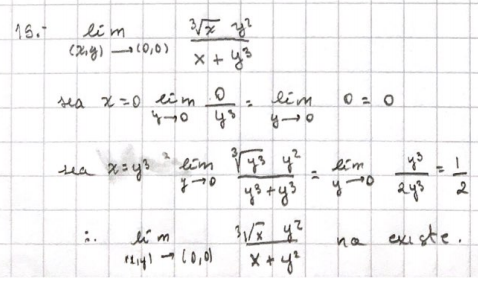 15.- lim (x,y)→(0,0) ∛x y² / x + y³
sea x=0 lim y→0 0/y³ = lim y→0 0 = 0
sea x=y³ lim y→0 ∛y³ y² / y³+y³ = lim y→0 y³/2y³ = 1/2
∴ lim (x,y)→(0,0) ∛x y² / x + y² no existe.